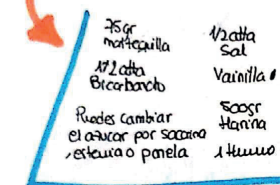 75gr
mantequilla
1/2 cdta
Bicarbonato
Puedes cambiar
el azucar por sacarina
, estevia o panela
1/2 cdta
Sal
Vainilla
500gr
Harina
1 Huevo